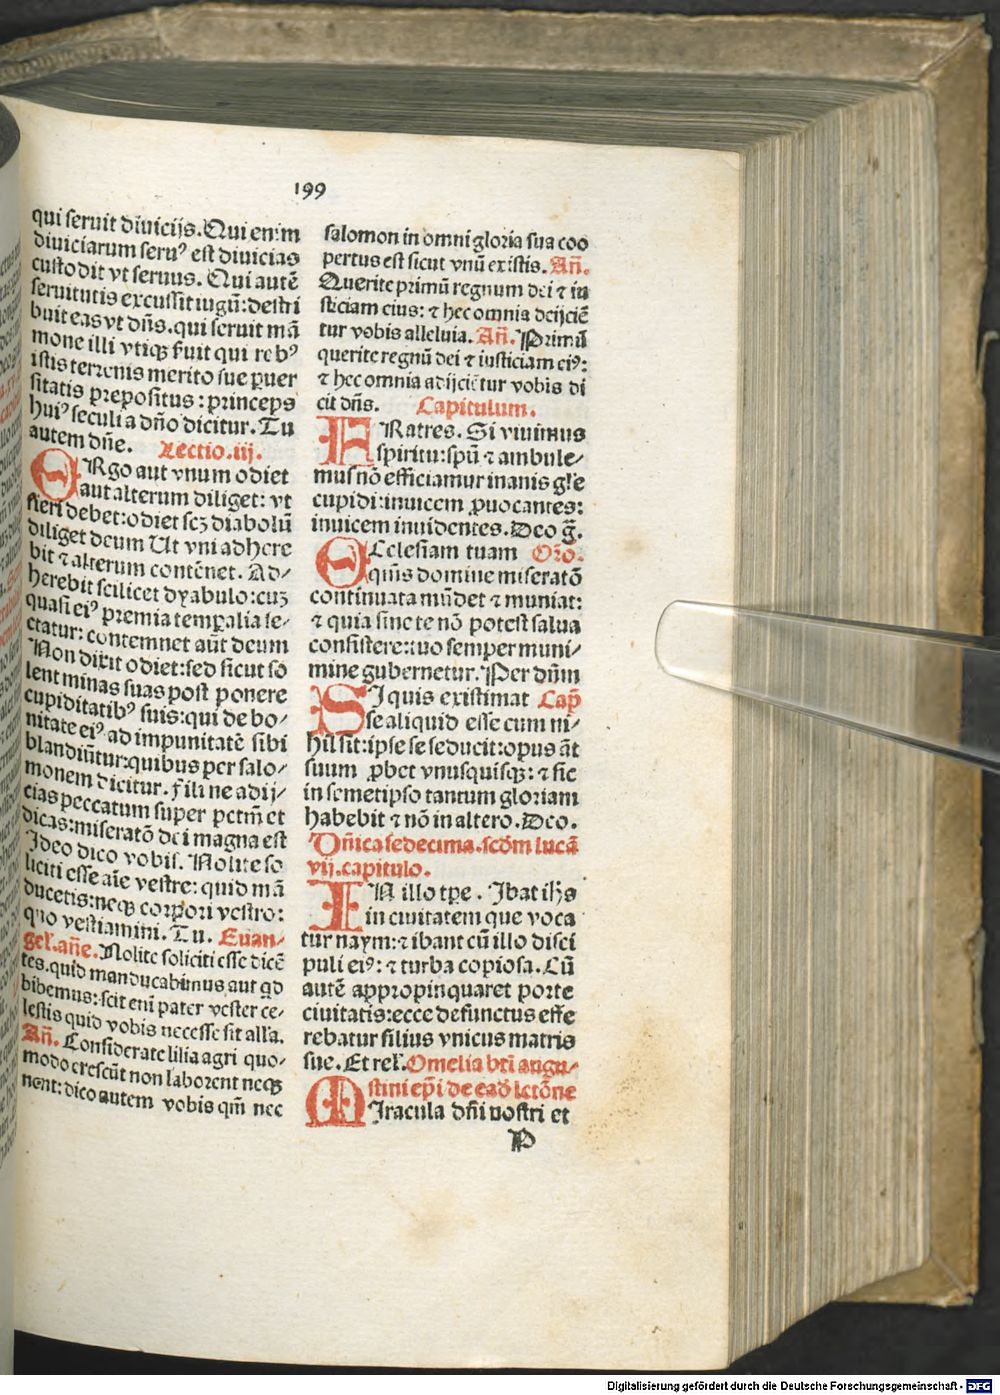 199
qui seruit diuicijs. Qui enim
diuiciarum seruꝰ est diuicias
custodit vt seruus. Qui autē
seruitutis excussit iugū: destri
buit eas vt dn̄s. qui seruit mā
mone illi vtiqꝫ fuit qui rebꝰ
istis terrenis merito sue puer
sitatis prepositus: princeps
huiꝰ seculi a dn̄o dicitur. Tu
autem dn̄e. Lectio .iij.
ERgo aut vnum odiet
aut alterum diliget: vt
fieri debet: odiet scꝫ diabolū
diliget deum Ut vni adhere
bit ⁊ alterum contēnet. Ad-
herebit scilicet dyabulo: cuꝫ
quasi eiꝰ premia temꝑalia se-
ctatur: contemnet aūt deum
Non dixit odiet: sed sicut so
lent minas suas post ponere
cupiditatibꝰ suis: qui de bo-
nitate eiꝰ ad impunitatē sibi
blandiūtur: quibus per salo-
monem dicitur. fili ne adij-
cias peccatum super pctm̄ et
dicas: miseratō dei magna est
Ideo dico vobis. Nolite so
liciti esse aīe vestre: quid mā
ducetis: neqꝫ corpori vestro:
quo vestiamini. Tu. Euan-
gel. añe. Nolite soliciti esse dicē
tes. quid manducabimus aut qd
bibemus: scit eni pater vester ce-
lestis quid vobis necesse sit alla.
Añ. Considerate lilia agri quo-
modo crescūt non laborent neqꝫ
nent: dico autem vobis qm̄ nec
salomon in omni gloria sua coo
pertus est sicut vnū ex istis. Añ.
Querite primū regnum dei ⁊ iu
sticiam eius: ⁊ hec omnia deijciē
tur vobis alleluia. Añ. Primū
querite regnū dei ⁊ iusticiam eiꝰ:
⁊ hec omnia adijciētur vobis di
cit dn̄s. Capitulum.
FRatres. Si viuimus
spiritu: spū ⁊ ambule-
mus nō efficiamur inanis gl'e
cupidi: inuicem ꝓuocantes:
inuicem inuidentes. Deo g̃.
ECclesiam tuam Or̄o.
quis domine miseratō
continuata mūdet ⁊ muniat:
⁊ quia sine te nō potest salua
consistere: tuo semper muni-
mine gubernetur. Per dn̄m
SI quis existimat Cap̄
se aliquid esse cum ni-
hil sit: ipse se seducit: opus āt
suum ꝓbet vnusquisqꝫ: ⁊ sic
in semetipso tantum gloriam
habebit ⁊ nō in altero. Deo.
Dn̄ica sedecima. scd̄m lucā
vij. capitulo.
IN illo tꝑe. Ibat ih̄s
in ciuitatem que voca
tur naym: ⁊ ibant cū illo disci
puli eiꝰ: ⁊ turba copiosa. Cū
autē appropinquaret porte
ciuitatis: ecce defunctus effe
rebatur filius vnicus matris
sue. Et rel'. Omelia bt̄i augu-
stini ep̄i de eadē lctōne
MIracula dn̄i nostri et
P
Digitalisierung gefördert durch die Deutsche Forschungsgemeinschaft - DFG